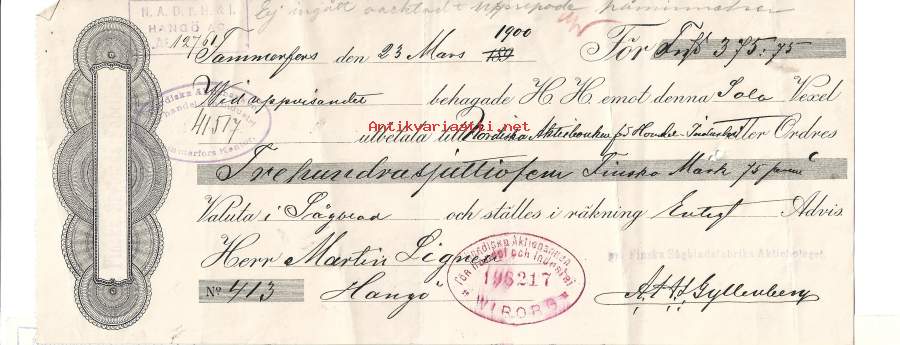 N. A. B. f. H. & I.
HANGÖ AG.
Ej ingått oaktadt upprepade påminnelser
1276/
Tammerfors den 23 Mars 1900 189 För Fmk 375.75
Wid uppvisandet behagade H. H. emot denna Sola Vexel
Nordiska Aktie
handel
41517
Tammerfors Kontor
Antikvariaatti.net
utbetala till Nordiska Aktiebanken för Handel o Industri eller Ordres
Trehundrasjuttiofem Finska Mark 75 penni
Valuta i Sågblad och ställes i räkning Enligt Advis.
Herr Martin
Nordiska Aktiebanken
för handel och industri
WIBORG
Finska Sågbladsfabriks Aktiebolaget
No 413 Hangö
Gyllenberg